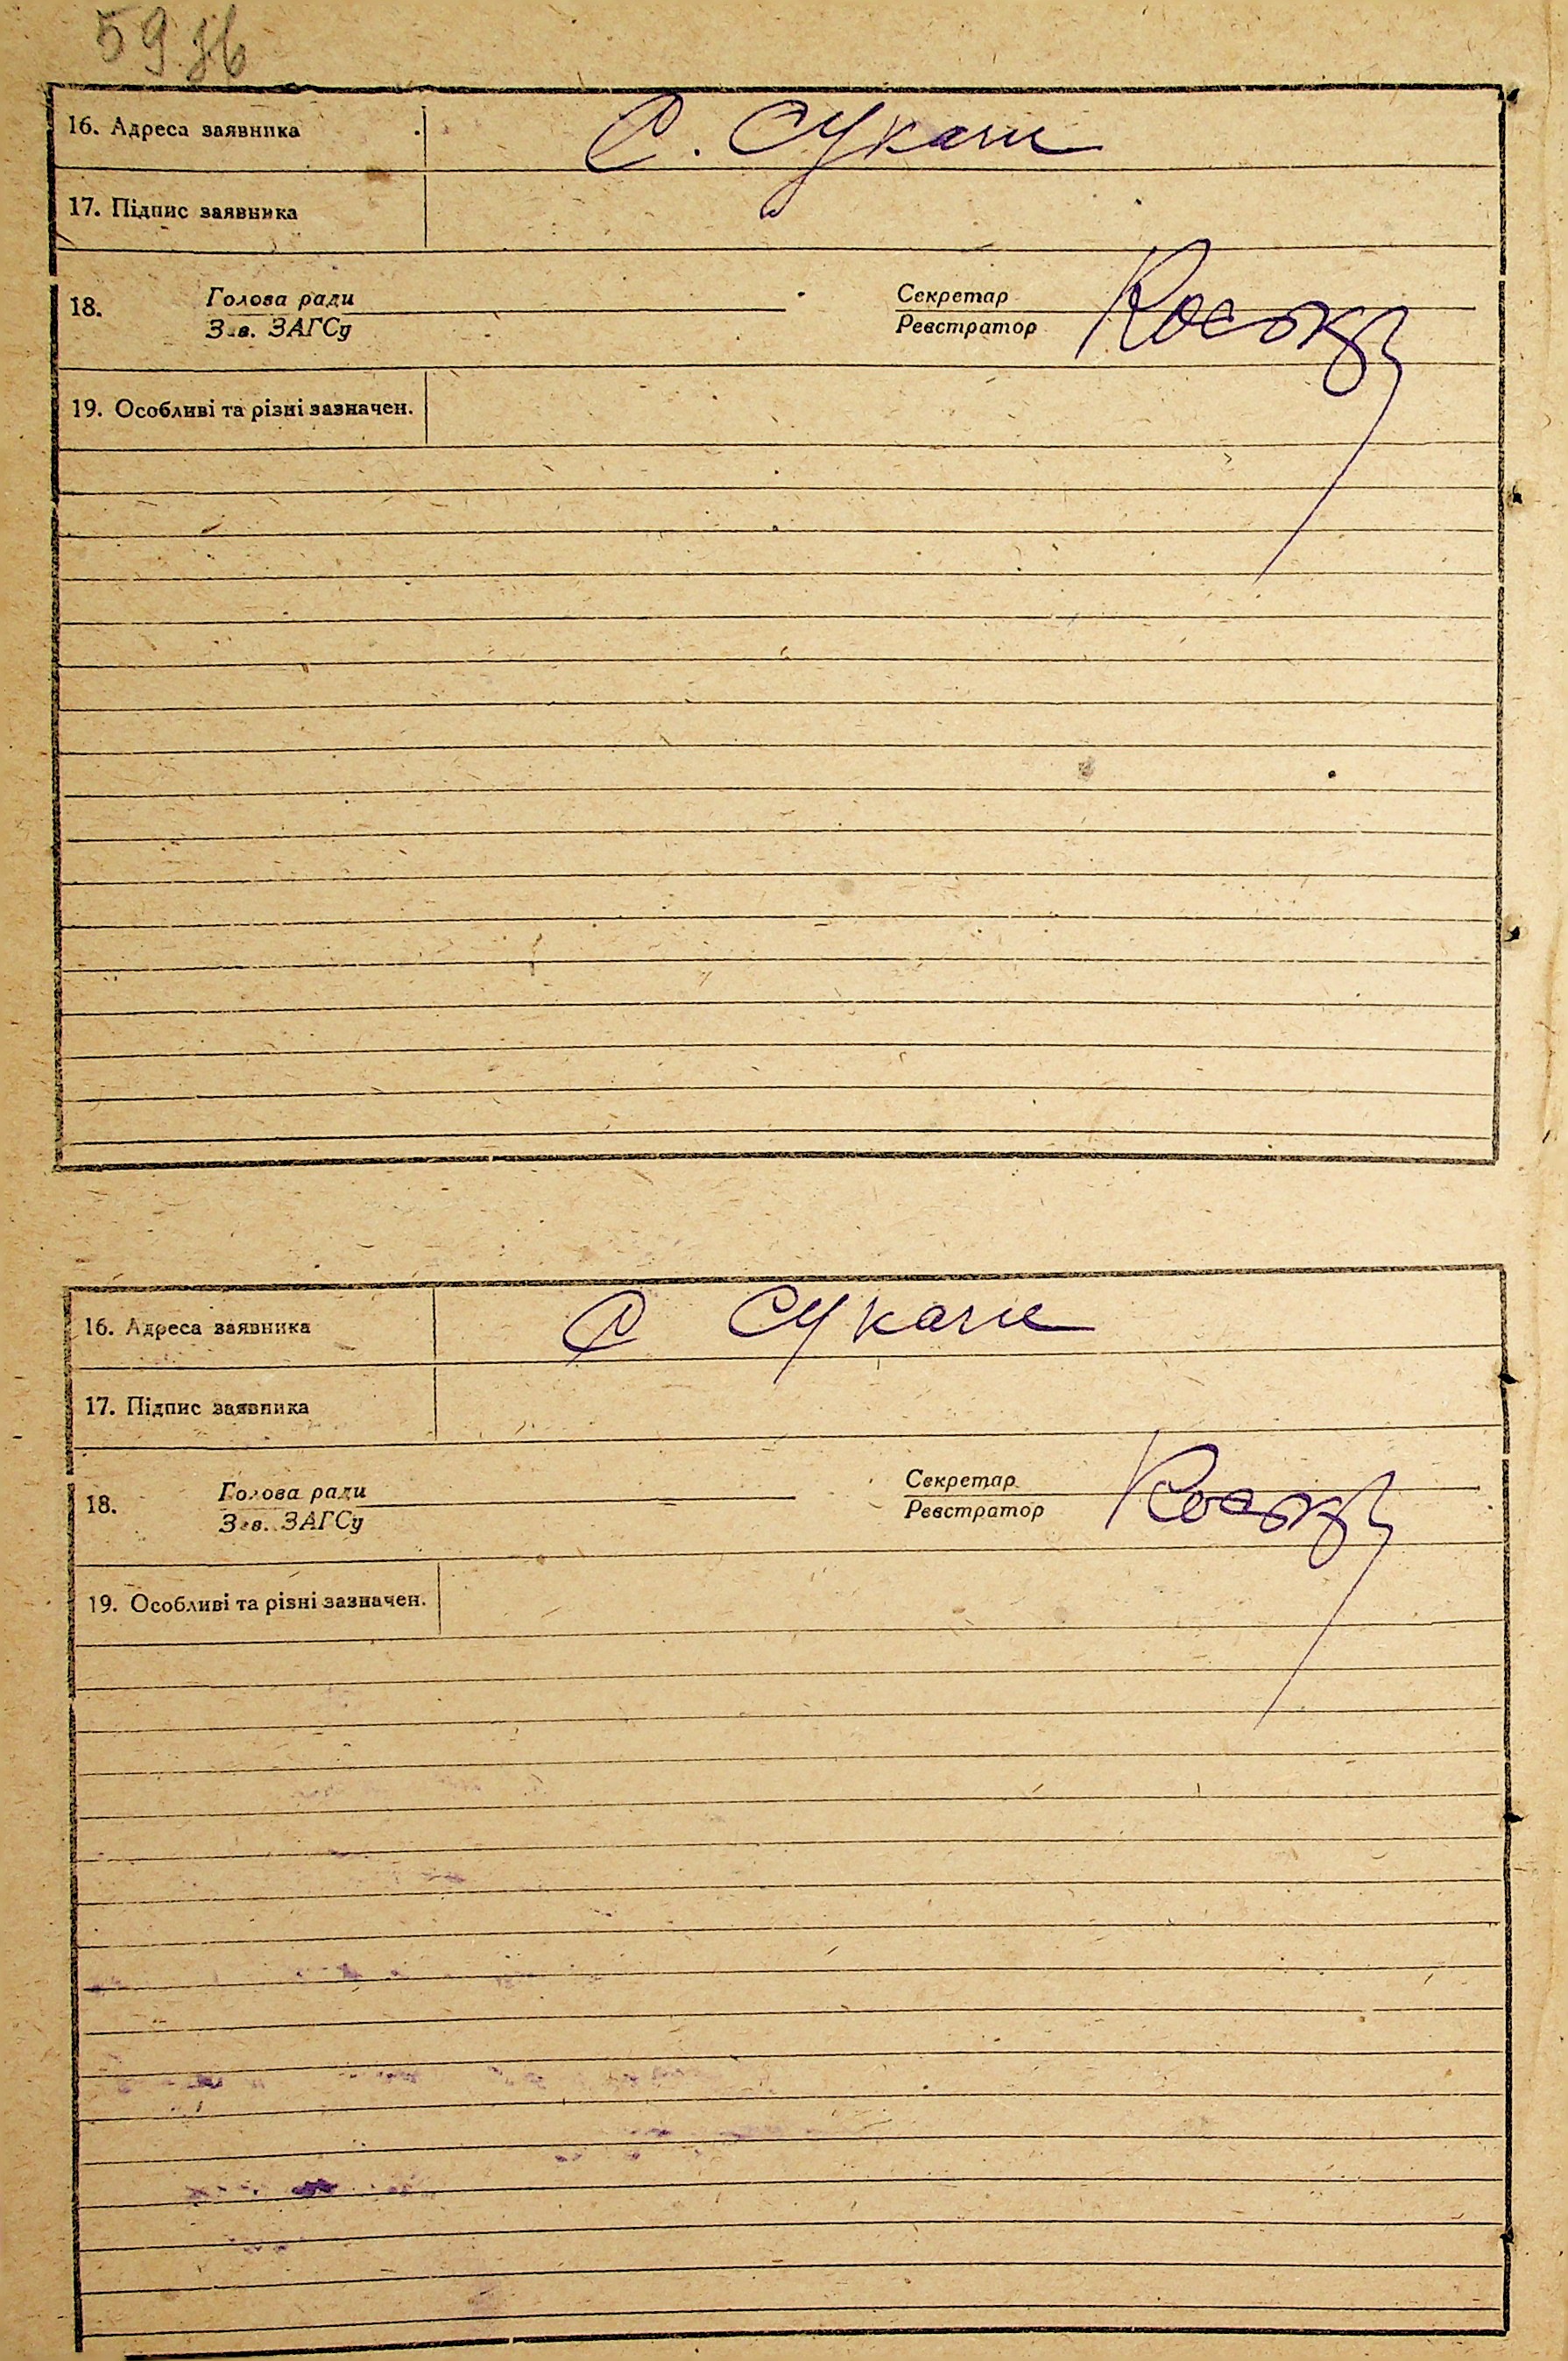 59 зв
16. Адреса заявника С. Сукачи
17. Підпис заявника
18. Голова ради Секретар
Зав. ЗАГСу Реєстратор
19. Особливі та різні зазначен.
16. Адреса заявника С Сукачи
17. Підпис заявника
18. Голова ради Секретар
Зав. ЗАГСу Реєстратор
19. Особливі та різні зазначен.